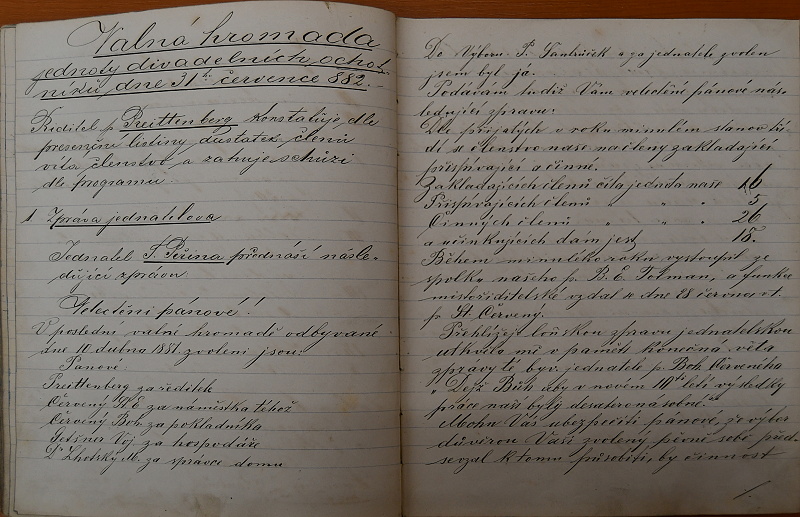 Valná hromada
jednoty divadelních ochot-
níků dne 31ho července 882.
Ředitel p. Preittenberg konstatuje, dle
presenční listiny dostatek členů
vítá členstvo a zahajuje schůzi
dle programu.
1 Zpráva jednatelova
Jednatel J. Peřina přednáší násle-
dující zprávu
Velectění pánové!
V poslední valné hromadě odbývané
dne 10. dubna 1881. zvoleni jsou:
Pánové
Preittenberg za ředitele
Červený St. E. za náměstka téhož
Červený Boh. za pokladníka
Voj. za hospodáře
Dr M. za správce domu
Do Výboru P. a za jednatele zvolen
jsem byl já.
Podávám tudíž Vám velectění pánové nás-
ledující zprávu.
Dle přijatých v roku minulém stanov řá-
dí se členstvo naše na členy zakladající
přispívající a činné.
Zakladajících členů čítá jednota naše 16
Přispívajících členů " " " 5
Činných členů " " " 26
a účinkujících dám jest 18.
Během minulého roku vystoupil ze
spolku našeho p. B. E. Tolman, a funkce
místořiditelské vzdal se dne 28 června t.r.
p. St. Červený.
Přehlížeje loňskou zprávu jednatelskou
utkvěla mě v paměti konečná věta
zprávy te býv. jednatele p. Boh. Červeného
" Dejž Bůh aby v novém 10ti letí výsledky
práce naší byly desateronásobné."
Mohu Vás ubezpečiti pánové, že výbor
důvěrou Vaší zvolený pevně sobě před-
sevzal k tomu působiti, by činnost